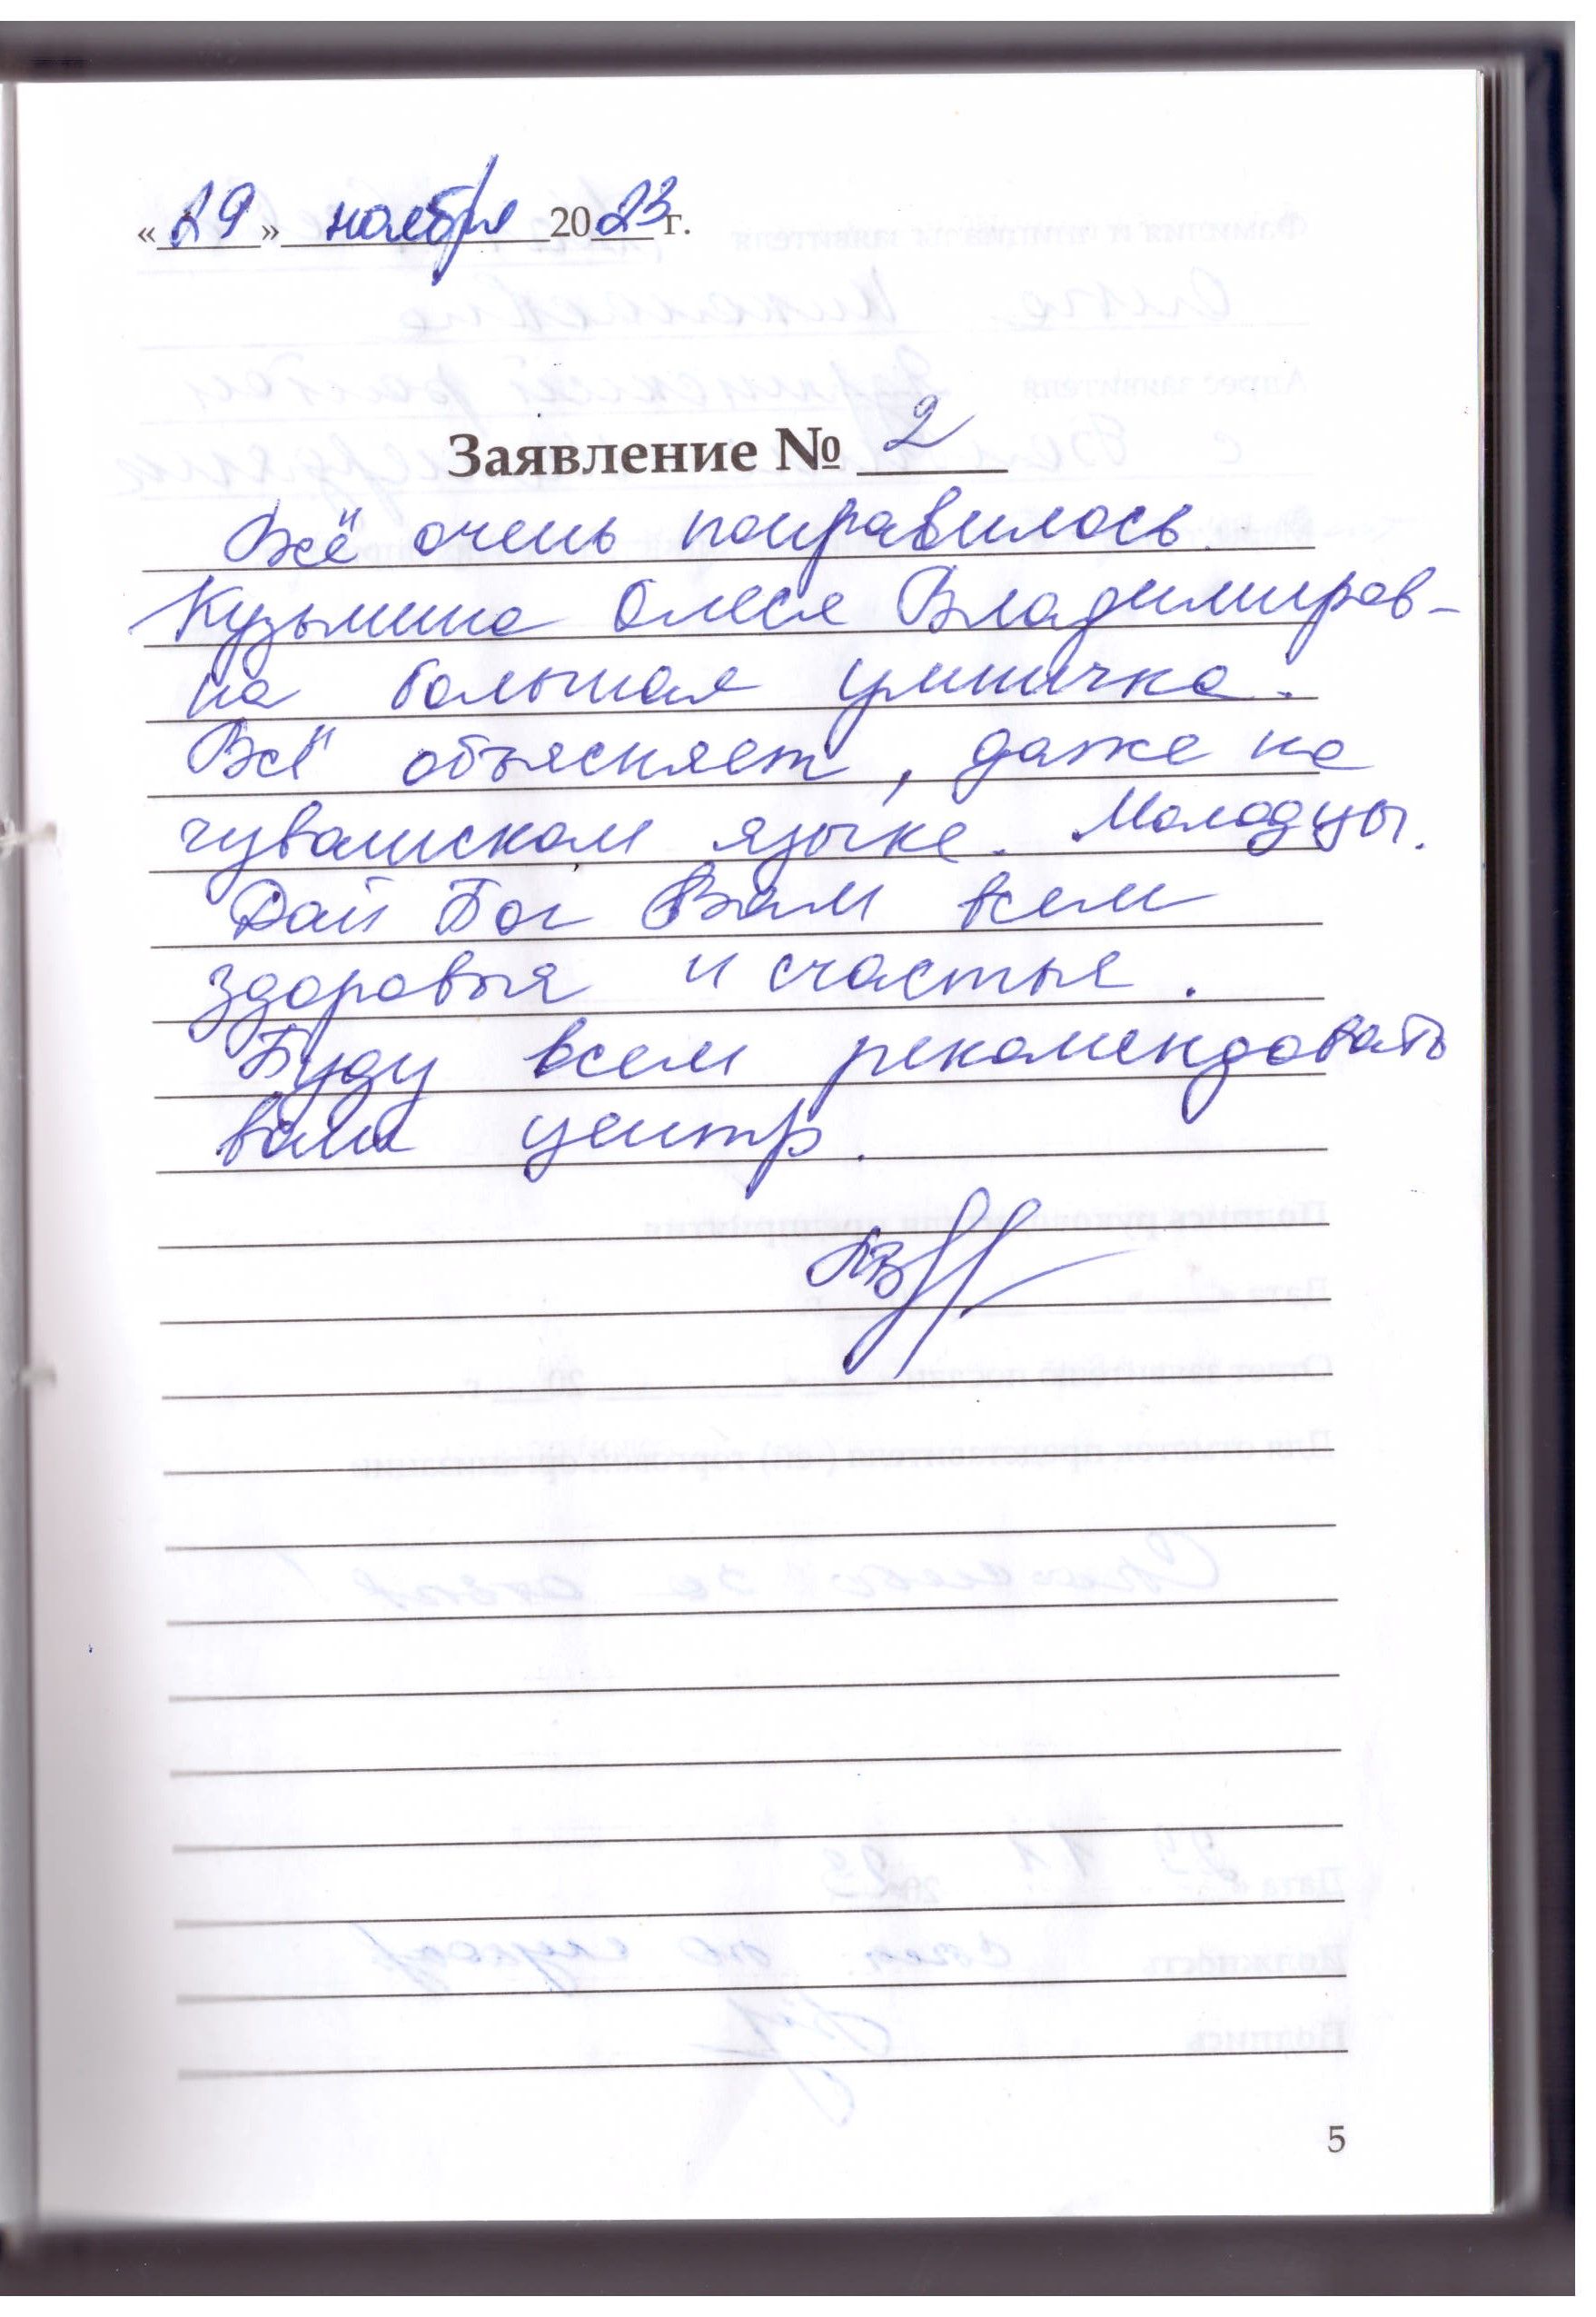 «29» ноября 2023 г.
Заявление № 2
Всё очень понравилось.
Кузьмина Олеся Владимиров-
на большая умничка.
Всё объясняет, даже на
чувашском языке. Молодцы.
Дай Бог Вам всем
здоровья и счастья.
Буду всем рекомендовать
ваш центр.
5